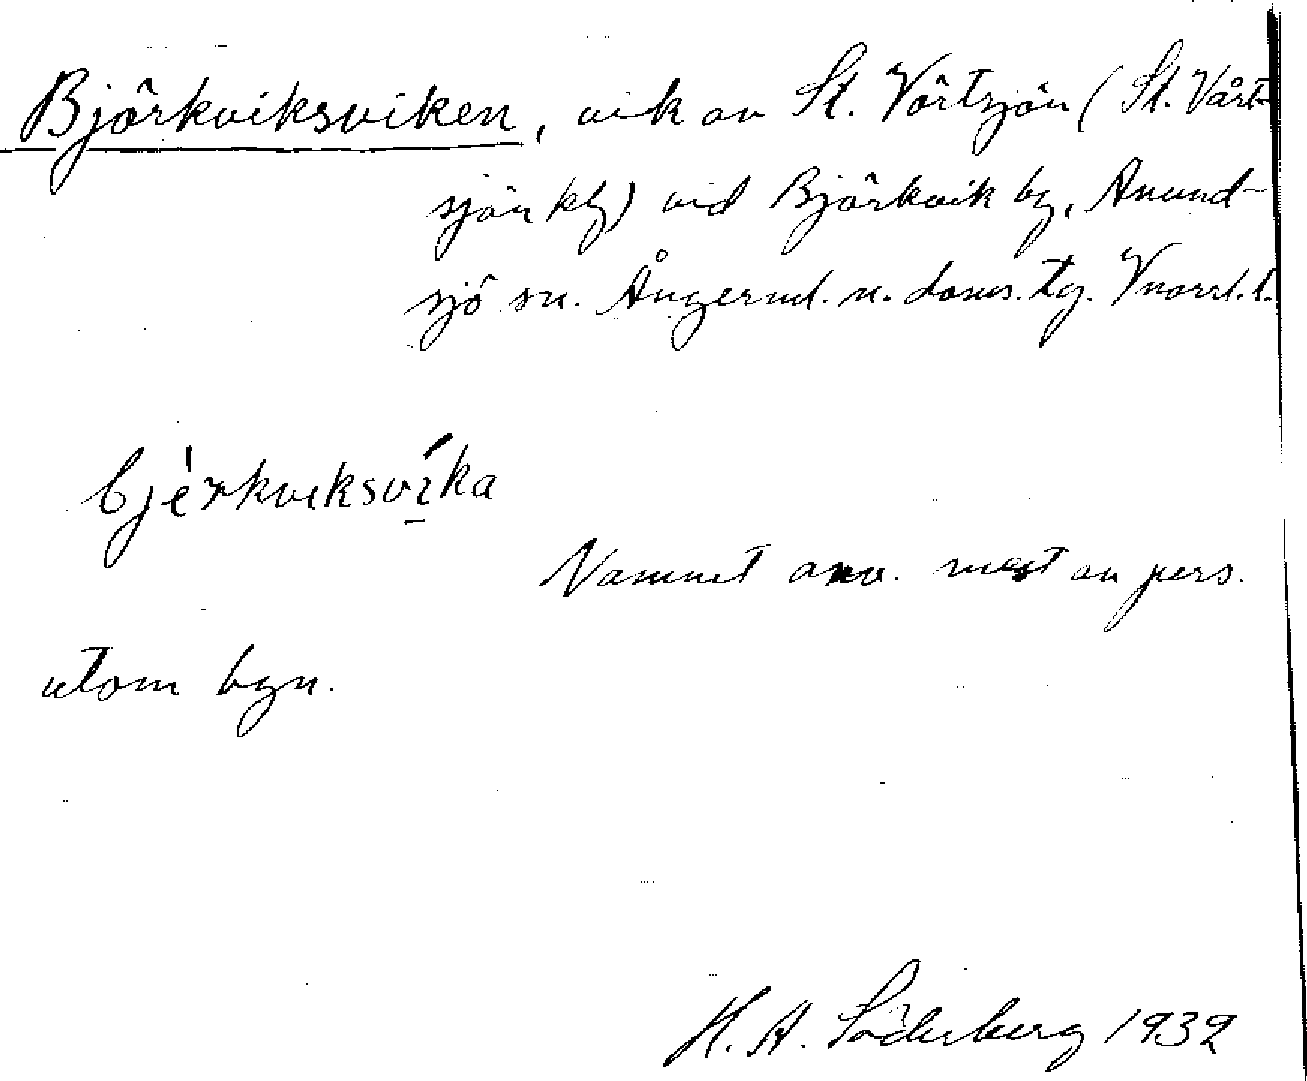 Björkviksviken, vik av St. Vörtsjön (St. Vårt-
sjön kbl) vid Björkvik by, Anund-
sjö sn. Ångerml. n. doms. tg. Vnorrl. l.
bjèrkviksvíka
Namnet anv. mest av pers.
utom byn.
H. A. Söderberg 1932